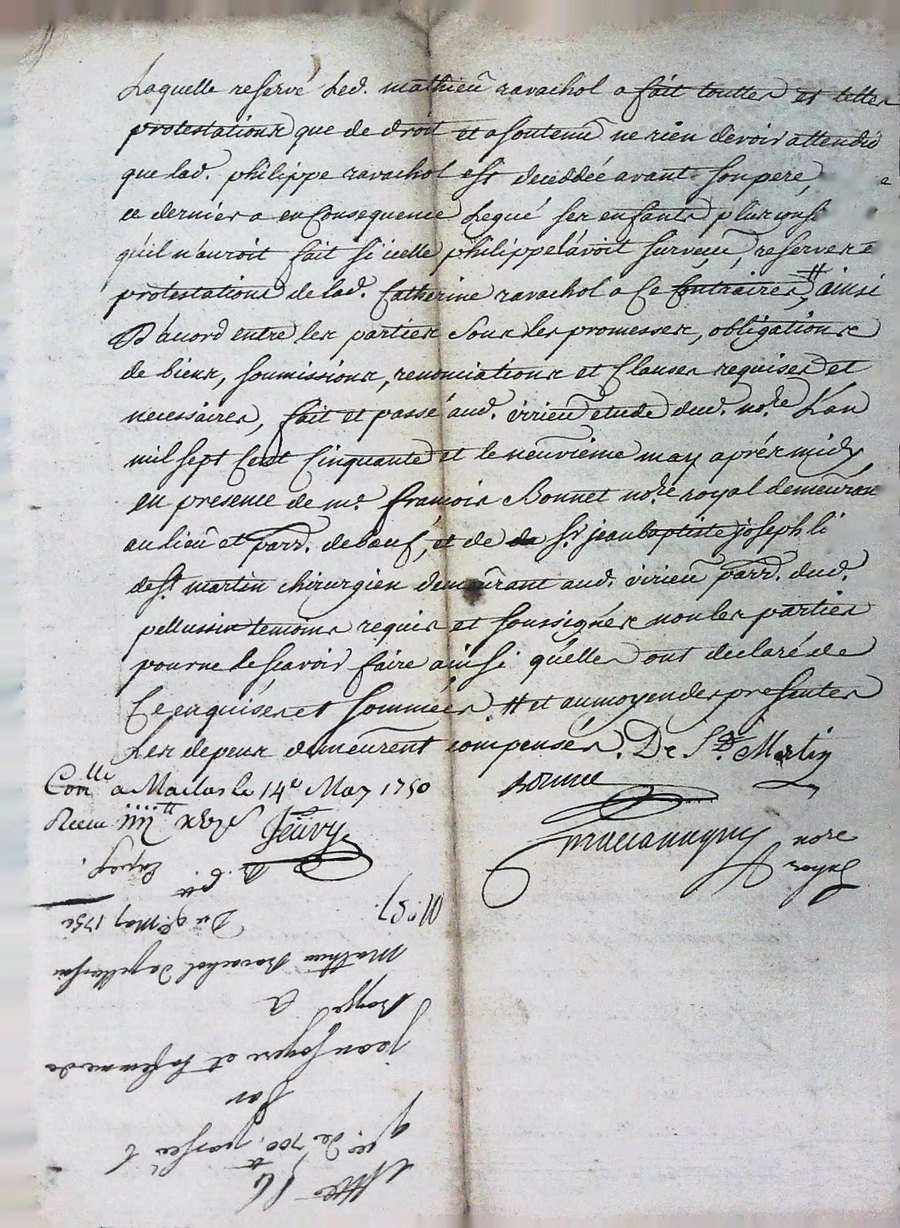 Laquelle reservé led. mathieu ravachol a fait touttes et telles
protestations que de droit et a soutenu ne rien devoir attendu
que lad. philippe ravachol est deceddée avant son pere,
ce dernier a en consequence legué ses enfants plus
qu'il n'auroit fait si icelle philippe l'avoit surveçu, reserves e
protestations de lad. Catherine ravachol a ce contraires, # ainsi
D'acord entre les parties sous les promesses, obligations
de biens, soumissions, renonciations et Clauses requises et
necessaires, fait et passé aud. virieu etude dud. nore. L'an
mil sept Cent Cinquante et le neuvième may après midy
en presence de me. françois Bonnet nore. royal demeuran
au lieu et parr. de bœuf, et de sr. jean baptiste joseph li
de st. martin chirurgien demeurant aud. virieu parr. dud.
pellussin temoins requis et soussignés non les parties
pour ne le sçavoir faire ainsi qu'elles ont declaré de
Ce enquises et sommées # et au moyen des presentes
Les depens demeurent compensés. De St. Martin
Bonnet
Conllé a Maclas le 14e May 1750
Receu
nore
royal
Du 9e May 1750
Mathieu Ravachol de pellussin
a
jean et sa femme de
par
qce. de 700